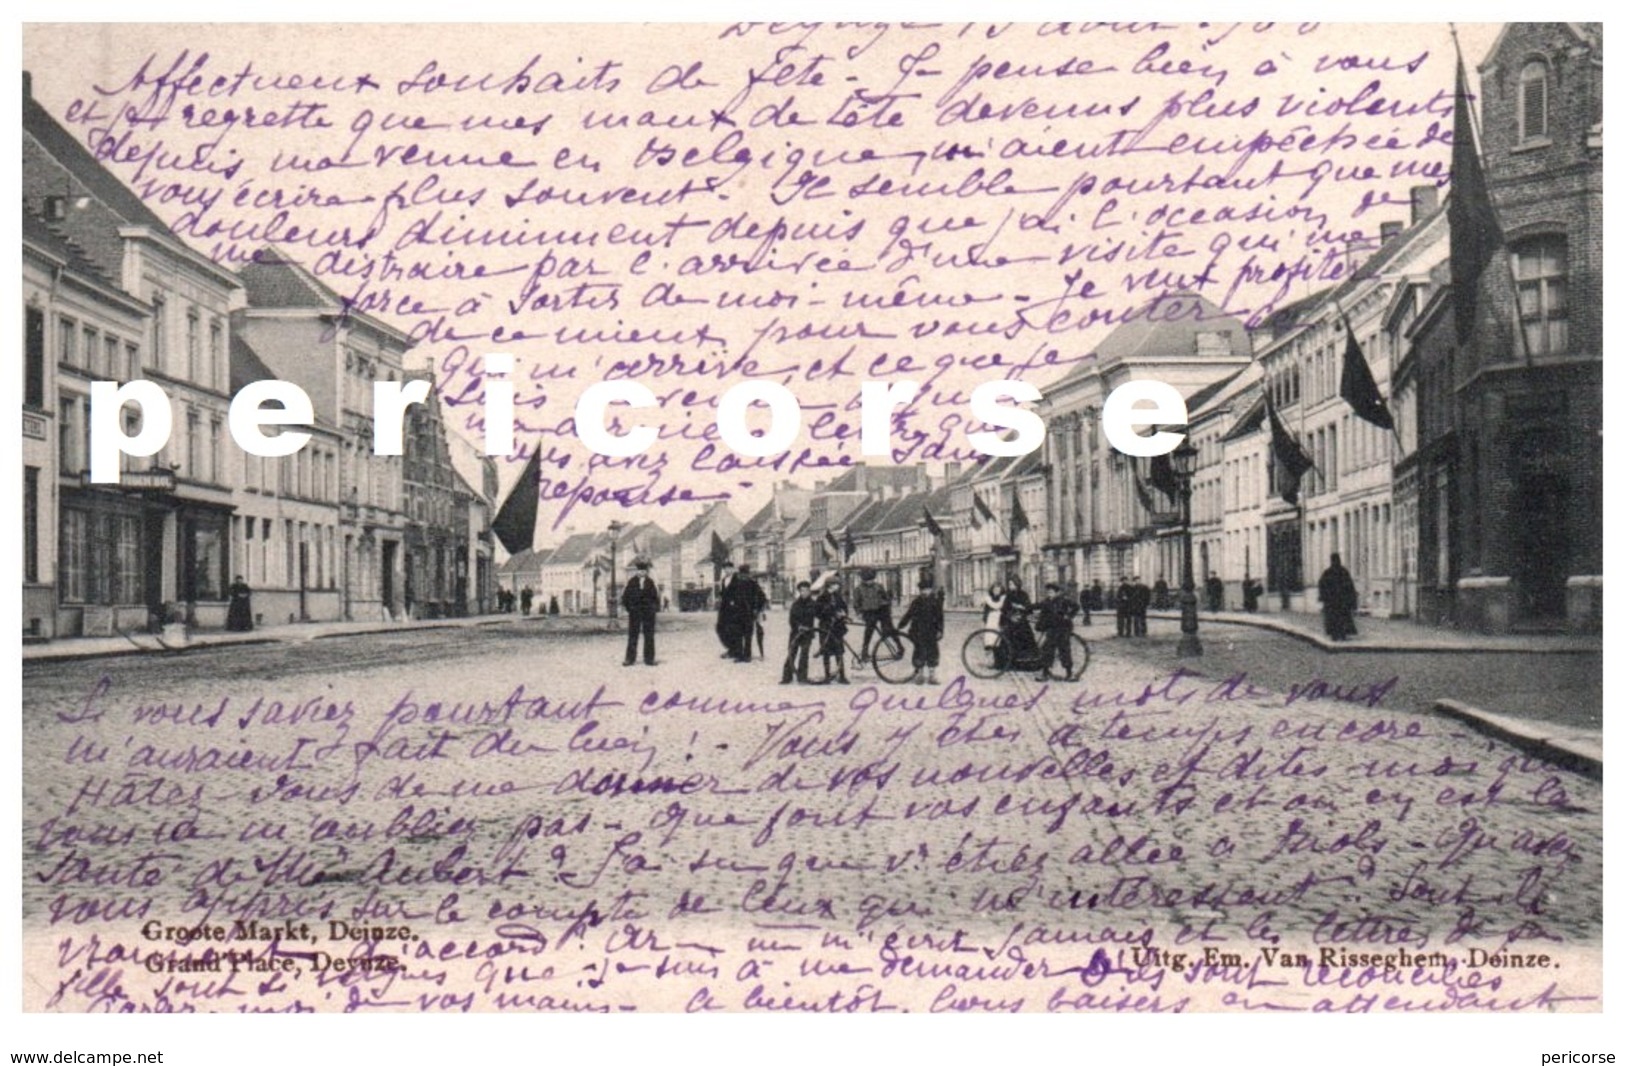 Deynze 15 Août
Affectueux souhaits de fête - Je pense bien à vous
et je regrette que mes maux de tête devenus plus violents
depuis ma venue en Belgique, m'aient empêchée de
vous écrire plus souvent. Il semble pourtant que mes
douleurs diminuent depuis que j'ai l'occasion de
me distraire par l'arrivée d'une visite qui me
force à sortir de moi-même - Je veux profiter
de ce mieux pour vous conter ce
qui m'arrive, et ce que je
suis
ma dernière lettre que
vous avez laissée sans
réponse -
pericorse
Si vous saviez pourtant comme quelques mots de vous
m'auraient fait du bien ! - Vous y êtes à temps encore -
Hâtez-vous de me donner de vos nouvelles et dites-moi que
vous ne m'oubliez pas - Que font vos enfants et où en est la
santé de Aubert ? J'ai su que v. étiez allée à - Qu'avez
vous appris sur le compte de ceux qui m'intéressent ? Sont-ils
vraiment d'accord ? On ne m'écrit jamais et les lettres de sa
fille sont si vagues que je suis à me demander s'ils sont réconciliés
Parlez-moi de vos mains - A bientôt, bons baisers en attendant
Groote Markt, Deinze.
Grand'Place, Deynze.
Uitg. Em. Van Risseghem, Deinze.
www.delcampe.net
pericorse